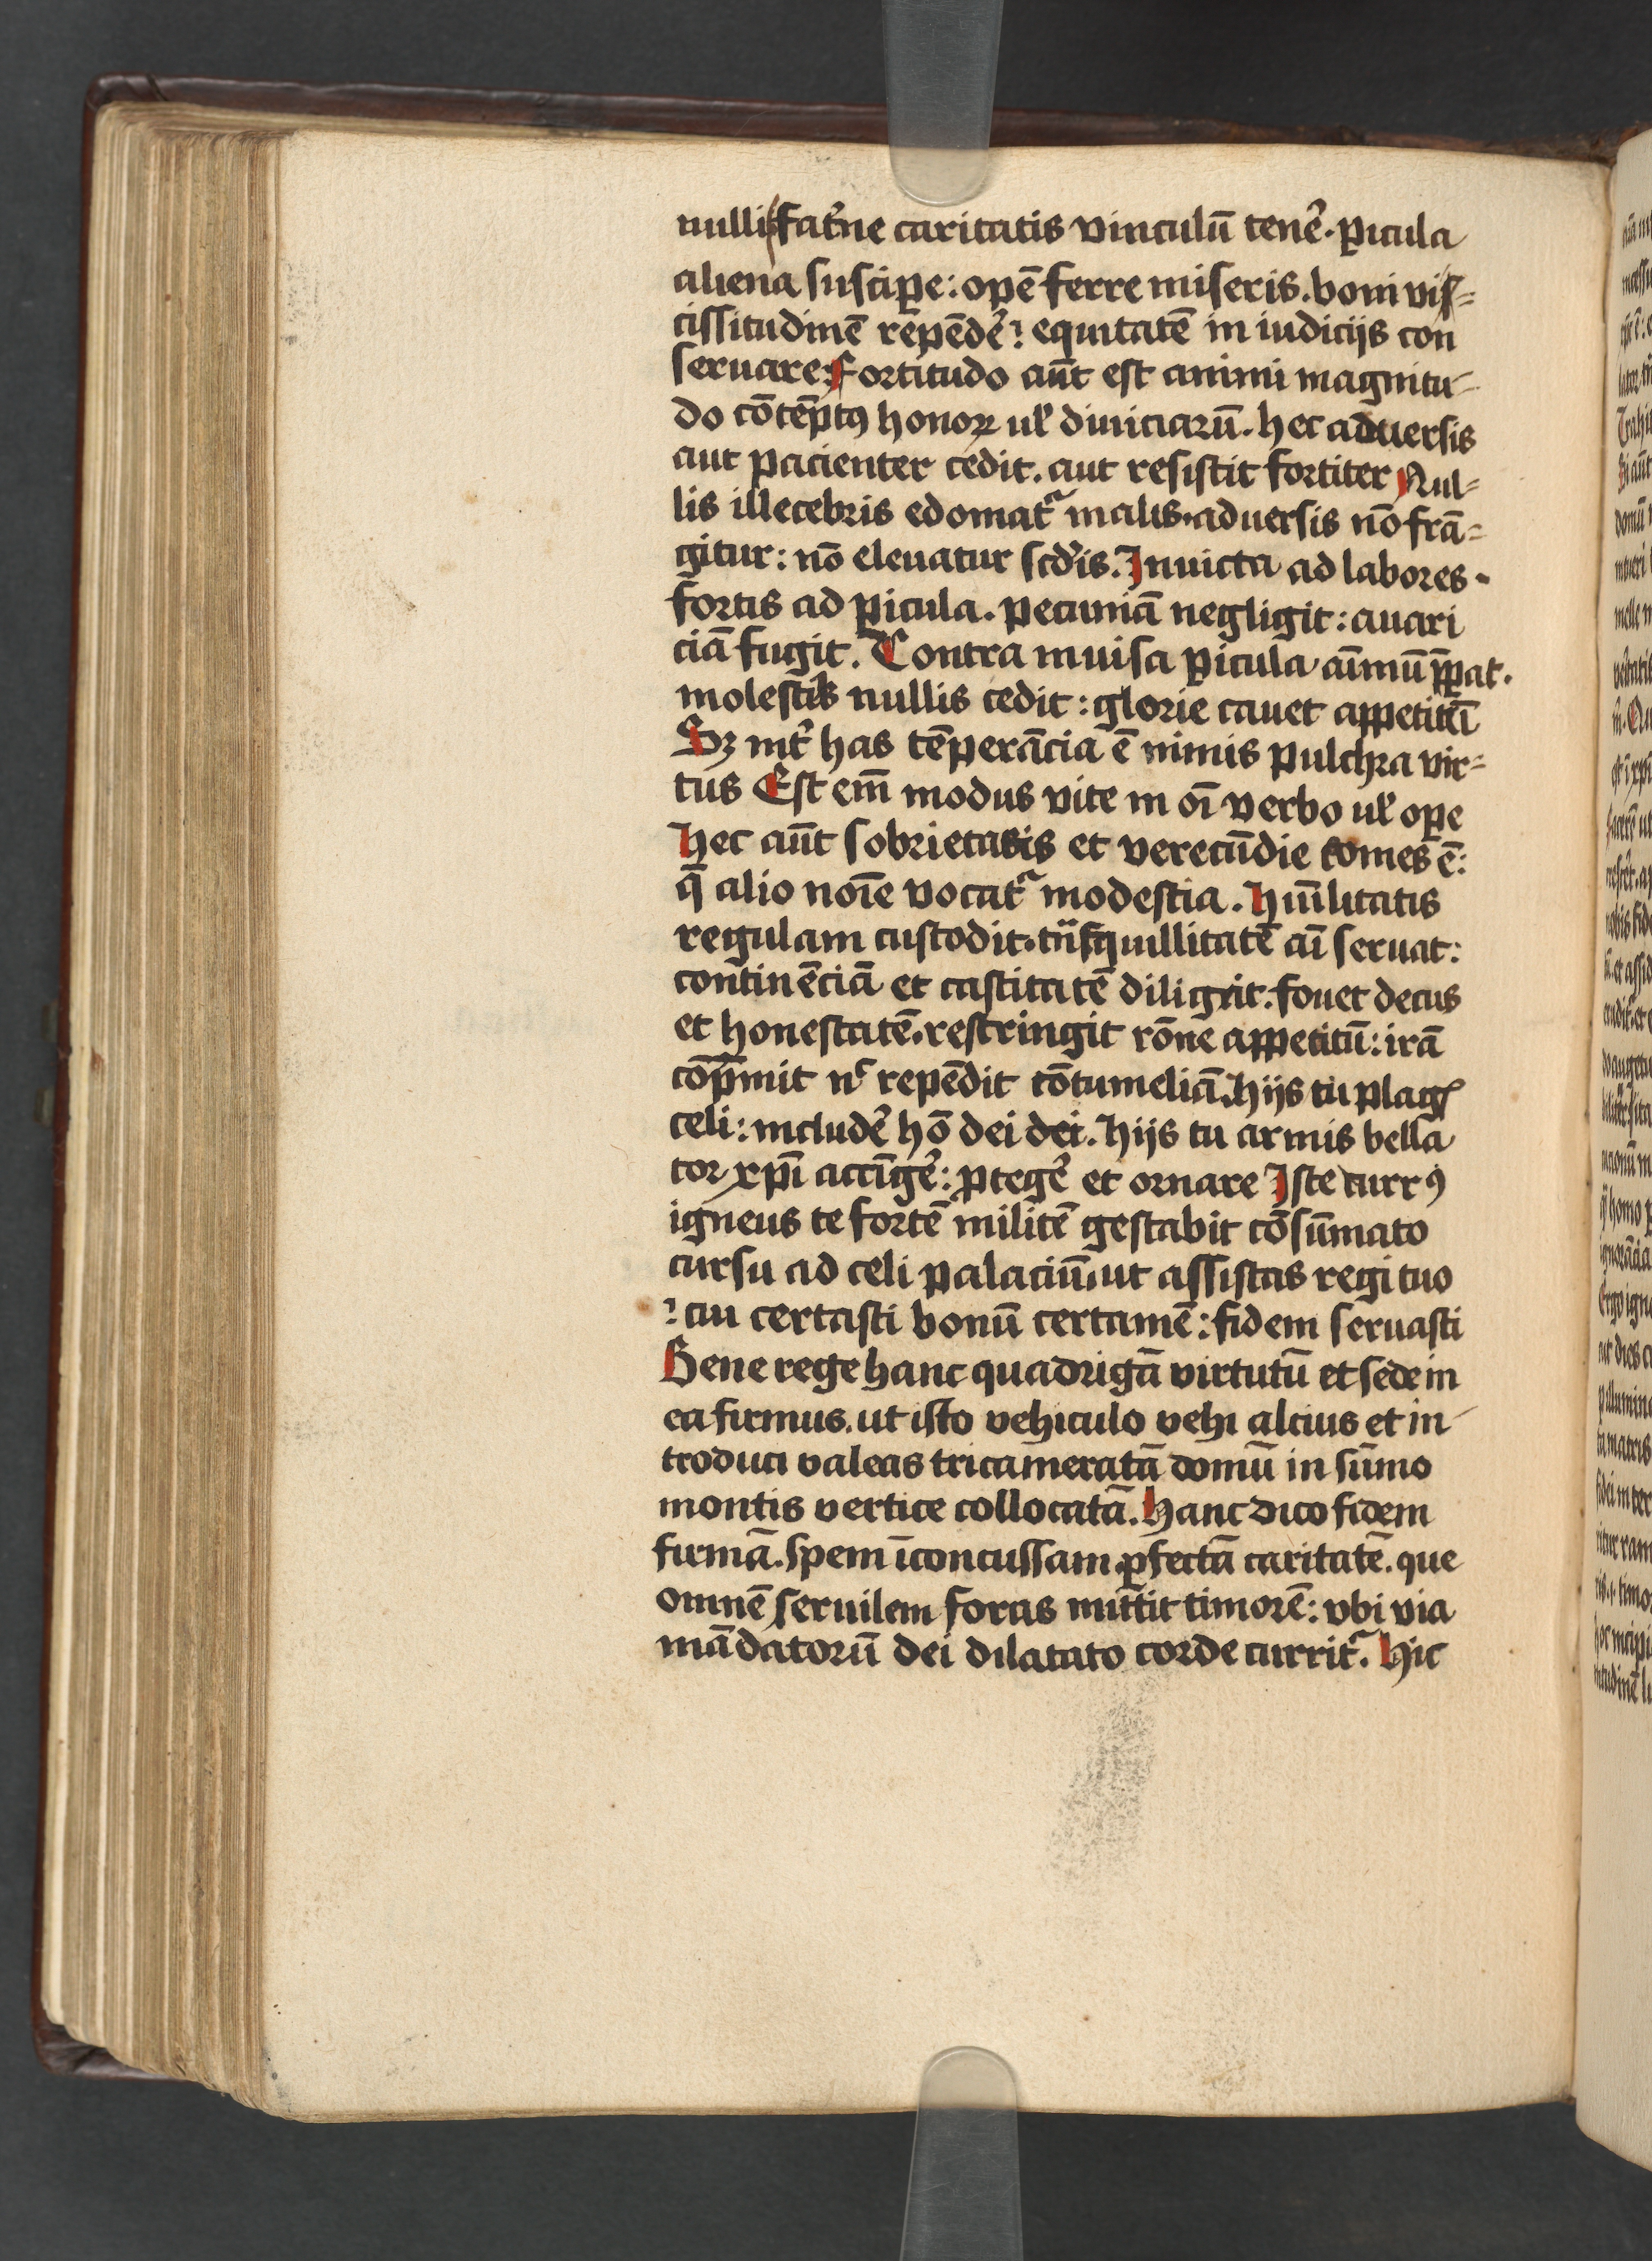 nulli fat̾ne caritatis vinculū tener̄. ꝑicula
aliena suscipe: opē ferre miseris. boni vis=
cissitudinē rēpēder̄: equitatē in iudicijs con
seruare: Fortitudo aūt est animi magnitu-
do cōtēptꝰ honoꝝ ul̾ diuiciarū. hec aduersis
aut pacienter cedit. aut resistit fortiter Nul=
lis illecebris edomatᷣ malis. aduersis nō frā=
gitur: nō eleuatur scd̾is. Inuicta ad labores.
fortis ad ꝑicula. pecuniā negligit: auari
ciā fugit. Contra inuisa ꝑicula aīmū p̄ꝑat.
molestiis nullis cedit: glorie cauet appetitū
Sꝫ int̾ has tēperācia ē nimis pulchra vir=
tus Est em̄ modus vite in oī verbo ul̾ oꝑe
Hec aūt sobrietatis et verecūdie comes ē:
q̄ alio noīe vocatᷣ modestia. Hūilitatis
regulam custodit. tn̄sq̄uillitatē aī seruat:
continēciā et castitatē diligit. fouet decus
et honestatē. restringit rōne appetitū: irā
cōp̄mit nᶜ repēdit cōtumeliā. Hijs tu plagꝭ
celi: includer̄ hō dei dei. Hijs tu armis bella
tor xp̄i accīger̄: ꝓteger̄ et ornare Iste currꝰ
igneus te fortē militē gestabit cōsūmato
cursu ad celi palaciū. ut assistas regi tuo
: cui certasti bonū certamē: fidem seruasti
Bene rege hanc quadrigā virtutū et sede in
ea firmus. ut isto vehiculo vehi alcius et in-
troduci valeas tricameratā domū in sūmo
montis vertice collocatā. Hanc dico fidem
firmā. spem īconcussam. ꝑfectā caritatē. que
omnē seruilem foras mittit timorē: vbi via
mādatorū dei dilatato corde curritᷣ. Hic